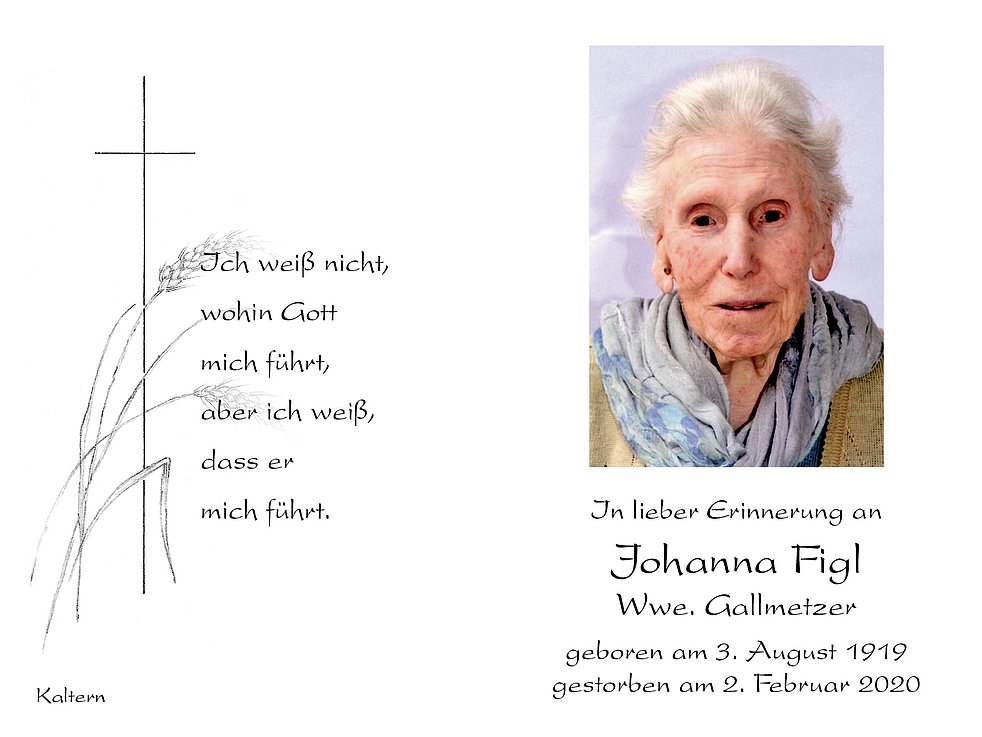 Ich weiß nicht,
wohin Gott
mich führt,
aber ich weiß,
dass er
mich führt.
Kaltern
In lieber Erinnerung an
Johanna Figl
Wwe. Gallmetzer
geboren am 3. August 1919
gestorben am 2. Februar 2020